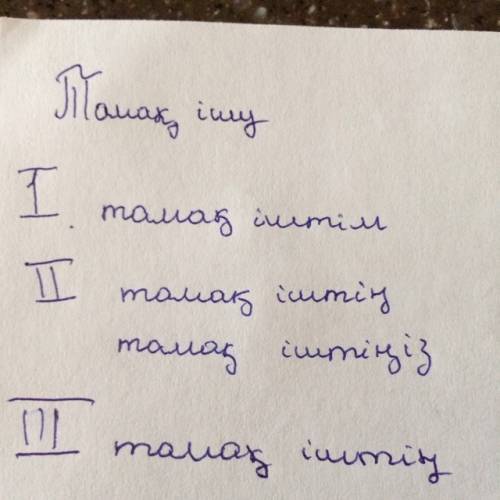 Тамақ ішу
I. тамақ іштім
II тамақ іштің
тамақ іштіңіз
III тамақ іштің